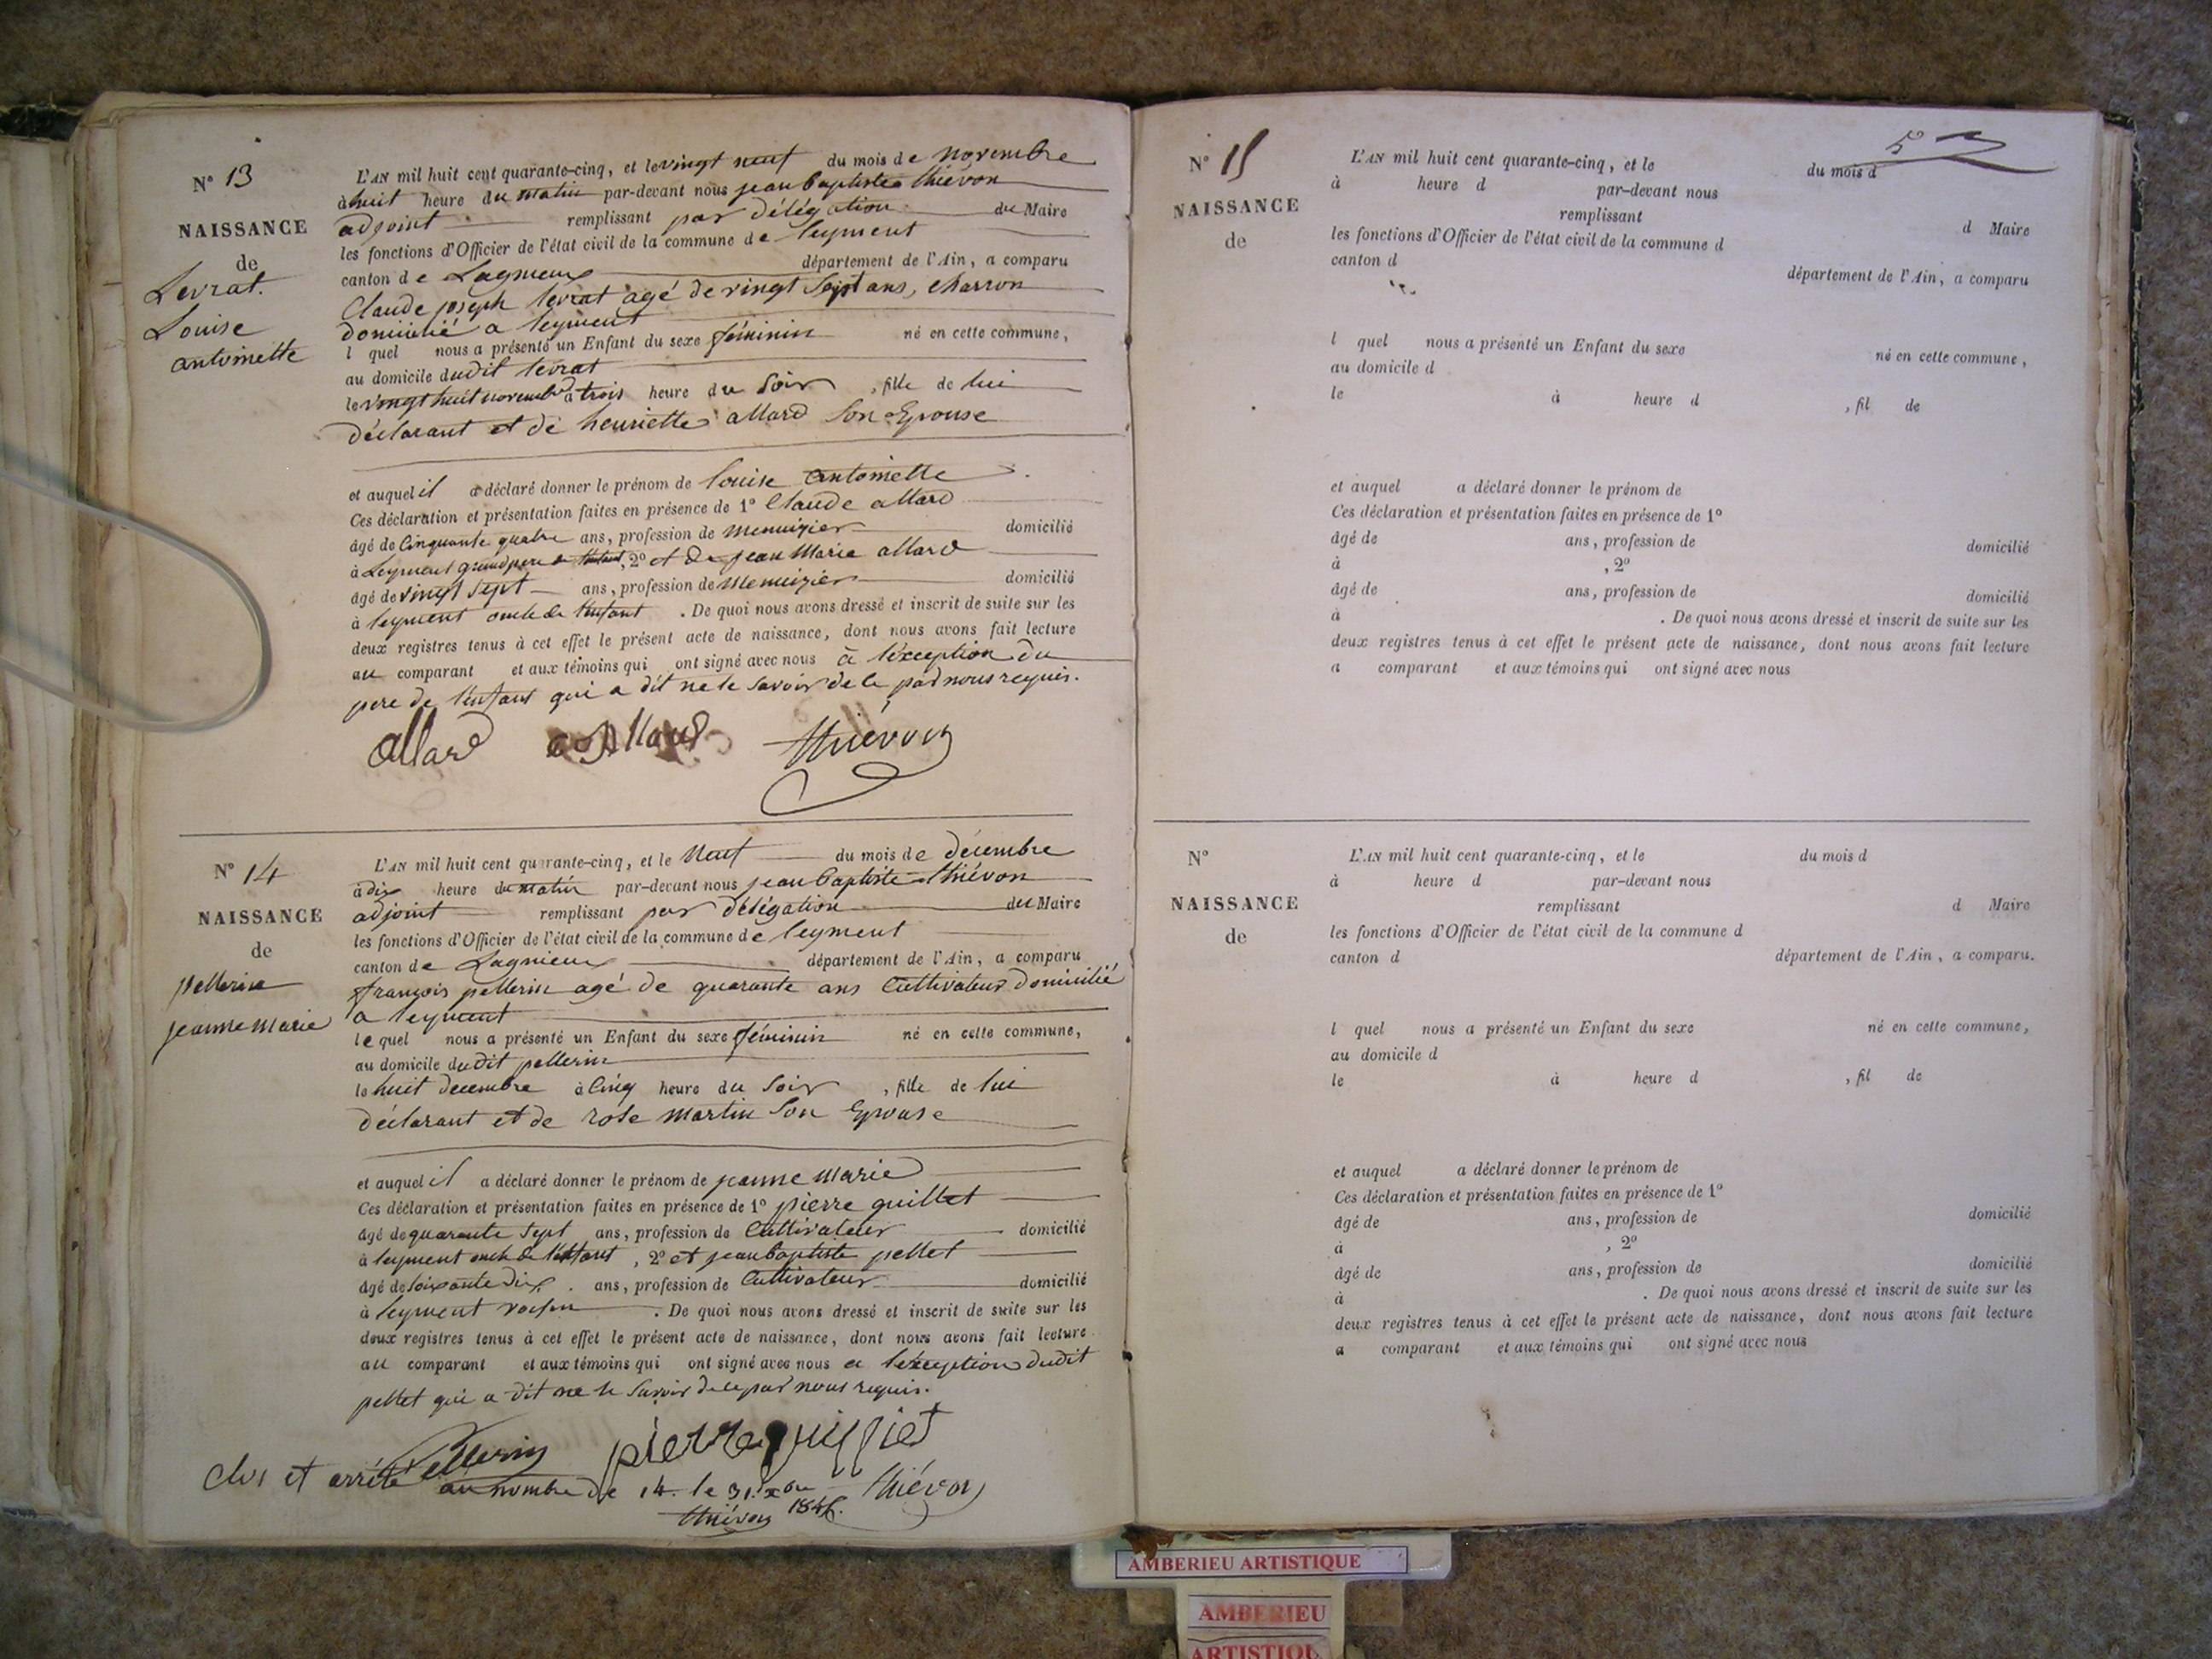 N° 13
NAISSANCE
de
Levrat.
Louise
antoinette
L'AN mil huit cent quarante-cinq, et le vingt neuf du mois de novembre
à huit heure du matin par-devant nous jean baptiste thiévon
adjoint remplissant par délégation du Maire
les fonctions d'Officier de l'état civil de la commune de leyment
canton de Lagnieux département de l'Ain, a comparu
Claude joseph levrat agé de vingt Sept ans, charron
domicilié a leyment
l quel nous a présenté un Enfant du sexe féminin né en cette commune,
au domicile dudit levrat
le vingt huit novembre à trois heure du Soir , fille de lui
déclarant et de henriette allard Son Epouse
et auquel il a déclaré donner le prénom de louise antoinette
Ces déclaration et présentation faites en présence de 1° Claude allard
âgé de Cinquante quatre ans, profession de menuizier domicilié
à Leyment grandpere de l'enfant, 2° et de jean Marie allard
âgé de vingt Sept ans, profession de menuizier domicilié
à leyment oncle de l'enfant . De quoi nous avons dressé et inscrit de suite sur les
deux registres tenus à cet effet le présent acte de naissance, dont nous avons fait lecture
au comparant et aux témoins qui ont signé avec nous à l'exception du
pere de l'enfant qui a dit ne le savoir de ce par nous requis.
allard allard thiévon
N° 14
NAISSANCE
de
pellerin
jeanne marie
L'AN mil huit cent quarante-cinq, et le Neuf du mois de décembre
à dix heure du matin par-devant nous jean baptiste thiévon
adjoint remplissant par délégation du Maire
les fonctions d'Officier de l'état civil de la commune de leyment
canton de Lagnieux département de l'Ain, a comparu
françois pellerin agé de quarante ans Cultivateur domicilié
a leyment
le quel nous a présenté un Enfant du sexe féminin né en cette commune,
au domicile dudit pellerin
le huit decembre à Cinq heure du Soir , fille de lui
déclarant et de rose martin Son Epouse
et auquel il a déclaré donner le prénom de jeanne marie
Ces déclaration et présentation faites en présence de 1° pierre quillet
âgé de quarante Sept ans, profession de Cultivateur domicilié
à leyment oncle de l'enfant , 2° et jean baptiste pellet
âgé de Soixante dix . ans, profession de Cultivateur domicilié
à leyment voisin . De quoi nous avons dressé et inscrit de suite sur les
deux registres tenus à cet effet le présent acte de naissance, dont nous avons fait lecture
au comparant et aux témoins qui ont signé avec nous a l'exception dudit
pellet qui a dit ne le Savoir de ce par nous requis.
Pellerin pierre quillet
Clos et arrêté au nombre de 14. le 31. xbre thiévon
thiévon 1845.
5
N° 15
NAISSANCE
de
L'AN mil huit cent quarante-cinq, et le du mois d
à heure d par-devant nous
remplissant d Maire
les fonctions d'Officier de l'état civil de la commune d
canton d département de l'Ain, a comparu
l quel nous a présenté un Enfant du sexe né en cette commune,
au domicile d
le à heure d , fil de
et auquel a déclaré donner le prénom de
Ces déclaration et présentation faites en présence de 1°
âgé de ans, profession de domicilié
à , 2°
âgé de ans, profession de domicilié
à . De quoi nous avons dressé et inscrit de suite sur les
deux registres tenus à cet effet le présent acte de naissance, dont nous avons fait lecture
a comparant et aux témoins qui ont signé avec nous
N°
NAISSANCE
de
L'AN mil huit cent quarante-cinq, et le du mois d
à heure d par-devant nous
remplissant d Maire
les fonctions d'Officier de l'état civil de la commune d
canton d département de l'Ain, a comparu.
l quel nous a présenté un Enfant du sexe né en cette commune,
au domicile d
le à heure d , fil de
et auquel a déclaré donner le prénom de
Ces déclaration et présentation faites en présence de 1°
âgé de ans, profession de domicilié
à , 2°
âgé de ans, profession de domicilié
à . De quoi nous avons dressé et inscrit de suite sur les
deux registres tenus à cet effet le présent acte de naissance, dont nous avons fait lecture
a comparant et aux témoins qui ont signé avec nous
AMBERIEU ARTISTIQUE
AMBERIEU
ARTISTIQU